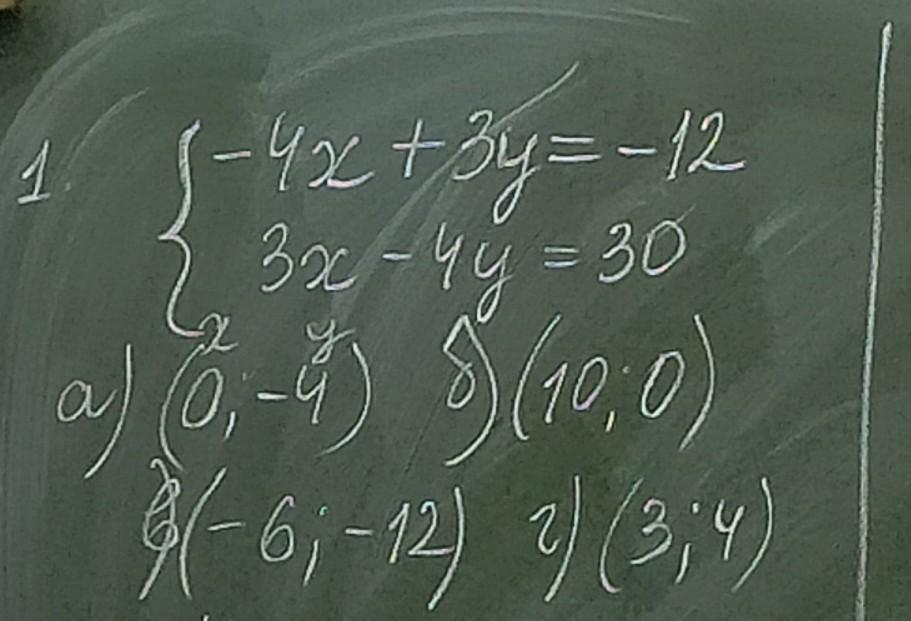 1. { -4x + 3y = -12
3x - 4y = 30
x y
а) (0; -4) б) (10; 0)
в) (-6; -12) г) (3; 4)